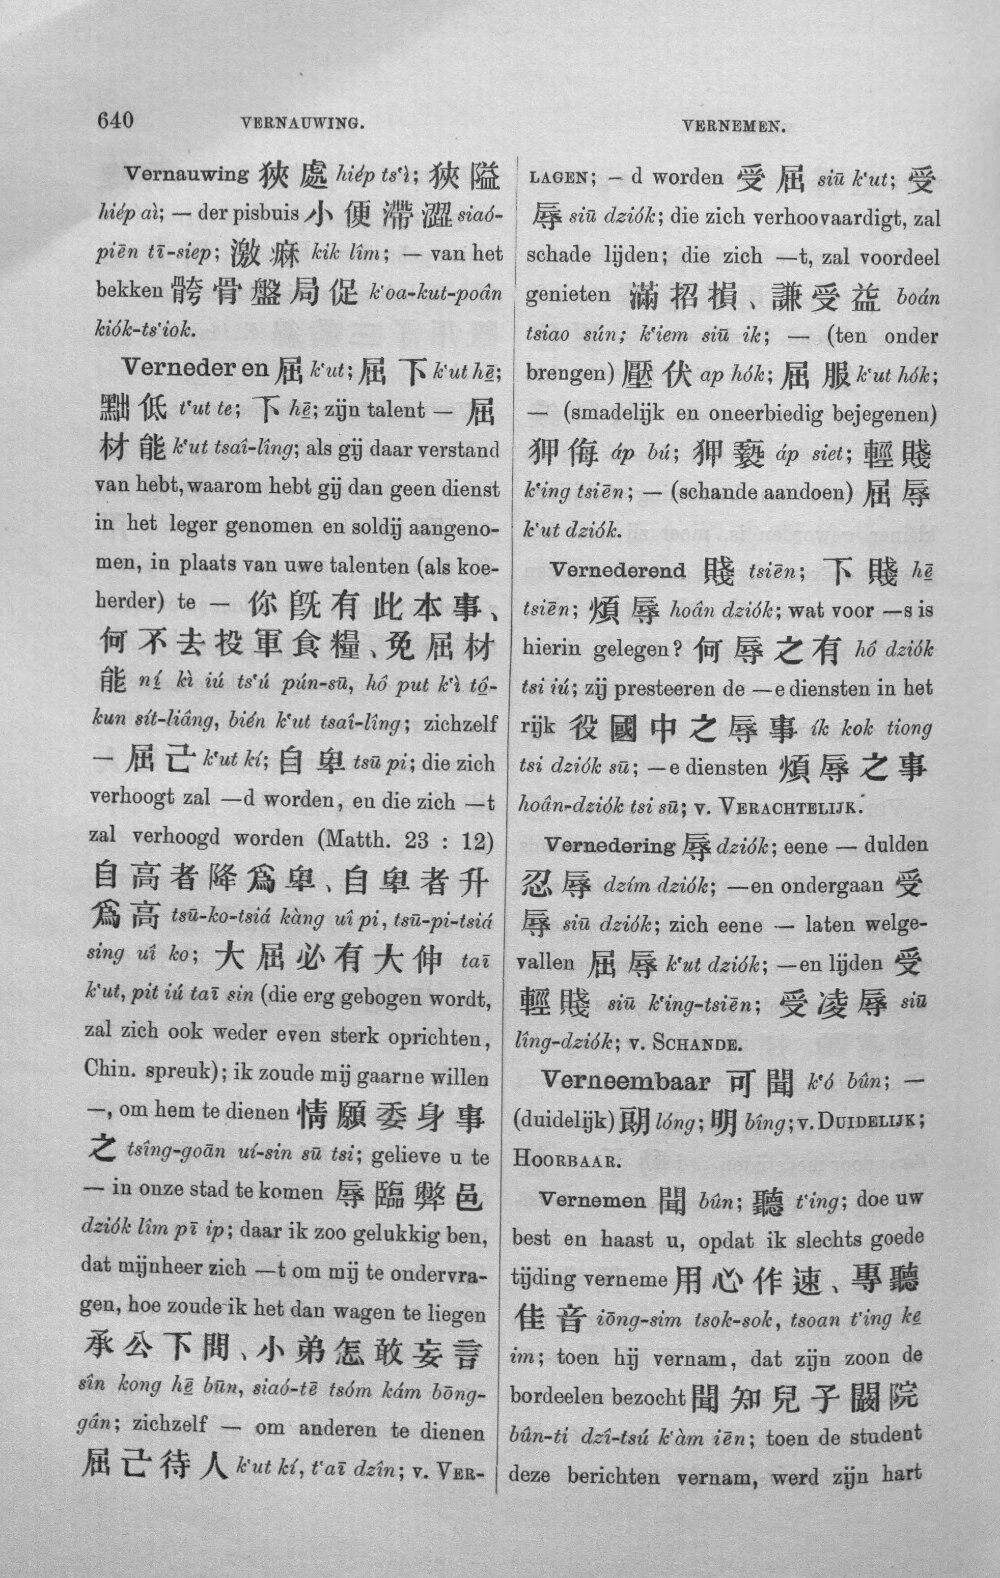 640
VERNAUWING.
VERNEMEN.
Vernauwing 狹處 hiép ts‘ì; 狹隘
hiép aì; — der pisbuis 小便滯澀 siaó-
piēn tī-siep; 激痳 kik lîm; — van het
bekken 骻骨盤局促 k‘oa-kut-poân
kiók-ts‘iok.
Vernederen 屈 k‘ut; 屈下 k‘ut hē;
黜低 t‘ut te; 下 hē; zijn talent — 屈
材能 k‘ut tsaî-lîng; als gij daar verstand
van hebt, waarom hebt gij dan geen dienst
in het leger genomen en soldij aangeno-
men, in plaats van uwe talenten (als koe-
herder) te — 你旣有此本事、
何不去投軍食糧、免屈材
能 ní kì iú ts‘ú pún-sū, hô put k‘ì tô-
kun sít-liâng, bién k‘ut tsaî-lîng; zichzelf
— 屈己 k‘ut kí; 自卑 tsū pi; die zich
verhoogt zal —d worden, en die zich —t
zal verhoogd worden (Matth. 23 : 12)
自高者降爲卑、自卑者升
爲高 tsū-ko-tsiá kàng uî pi, tsū-pi-tsiá
sing uî ko; 大屈必有大伸 taī
k‘ut, pit iú taī sin (die erg gebogen wordt,
zal zich ook weder even sterk oprichten,
Chin. spreuk); ik zoude mij gaarne willen
—, om hem te dienen 情願委身事
之 tsîng-goān uí-sin sū tsi; gelieve u te
— in onze stad te komen 辱臨弊邑
dziók lîm pī ip; daar ik zoo gelukkig ben,
dat mijnheer zich —t om mij te ondervra-
gen, hoe zoude ik het dan wagen te liegen
承公下問、小弟怎敢妄言
sîn kong hē būn, siaó-tē tsóm kám bōng-
gân; zichzelf — om anderen te dienen
屈己待人 k‘ut kí, t‘aī dzîn; v. VER-
LAGEN; — d worden 受屈 siū k‘ut; 受
辱 siū dziók; die zich verhoovaardigt, zal
schade lijden; die zich —t, zal voordeel
genieten 滿招損、謙受益 boán
tsiao sún; k‘iem siū ik; — (ten onder
brengen) 壓伏 ap hók; 屈服 k‘ut hók;
— (smadelijk en oneerbiedig bejegenen)
狎侮 áp bú; 狎褻 áp siet; 輕賤
k‘ing tsiēn; — (schande aandoen) 屈辱
k‘ut dziók.
Vernederend 賤 tsiēn; 下賤 hē
tsiēn; 煩辱 hoân dziók; wat voor —s is
hierin gelegen? 何辱之有 hô dziók
tsi iú; zij presteeren de —e diensten in het
rijk 役國中之辱事 ík kok tiong
tsi dziók sū; —e diensten 煩辱之事
hoân-dziók tsi sū; v. VERACHTELIJK.
Vernedering 辱 dziók; eene — dulden
忍辱 dzím dziók; —en ondergaan 受
辱 siū dziók; zich eene — laten welge-
vallen 屈辱 k‘ut dziók; —en lijden 受
輕賤 siū k‘ing-tsiēn; 受凌辱 siū
lîng-dziók; v. SCHANDE.
Verneembaar 可聞 k‘ó bûn; —
(duidelijk) 朗 lóng; 明 bîng; v. DUIDELIJK;
HOORBAAR.
Vernemen 聞 bûn; 聽 t‘ing; doe uw
best en haast u, opdat ik slechts goede
tijding verneme 用心作速、專聽
佳音 iōng-sim tsok-sok, tsoan t‘ing ke
im; toen hij vernam, dat zijn zoon de
bordeelen bezocht 聞知兒子闞院
bûn-ti dzî-tsú k‘àm iēn; toen de student
deze berichten vernam, werd zijn hart